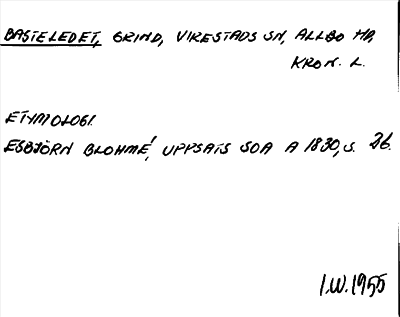 BASTELEDET, GRIND, VIRESTADS SN, ALLBO HD,
KRON. L.
ETYMOLOGI.
ESBJÖRN BLOHMÉ, UPPSATS SOA A 1830, S. 26.
I.W. 1955